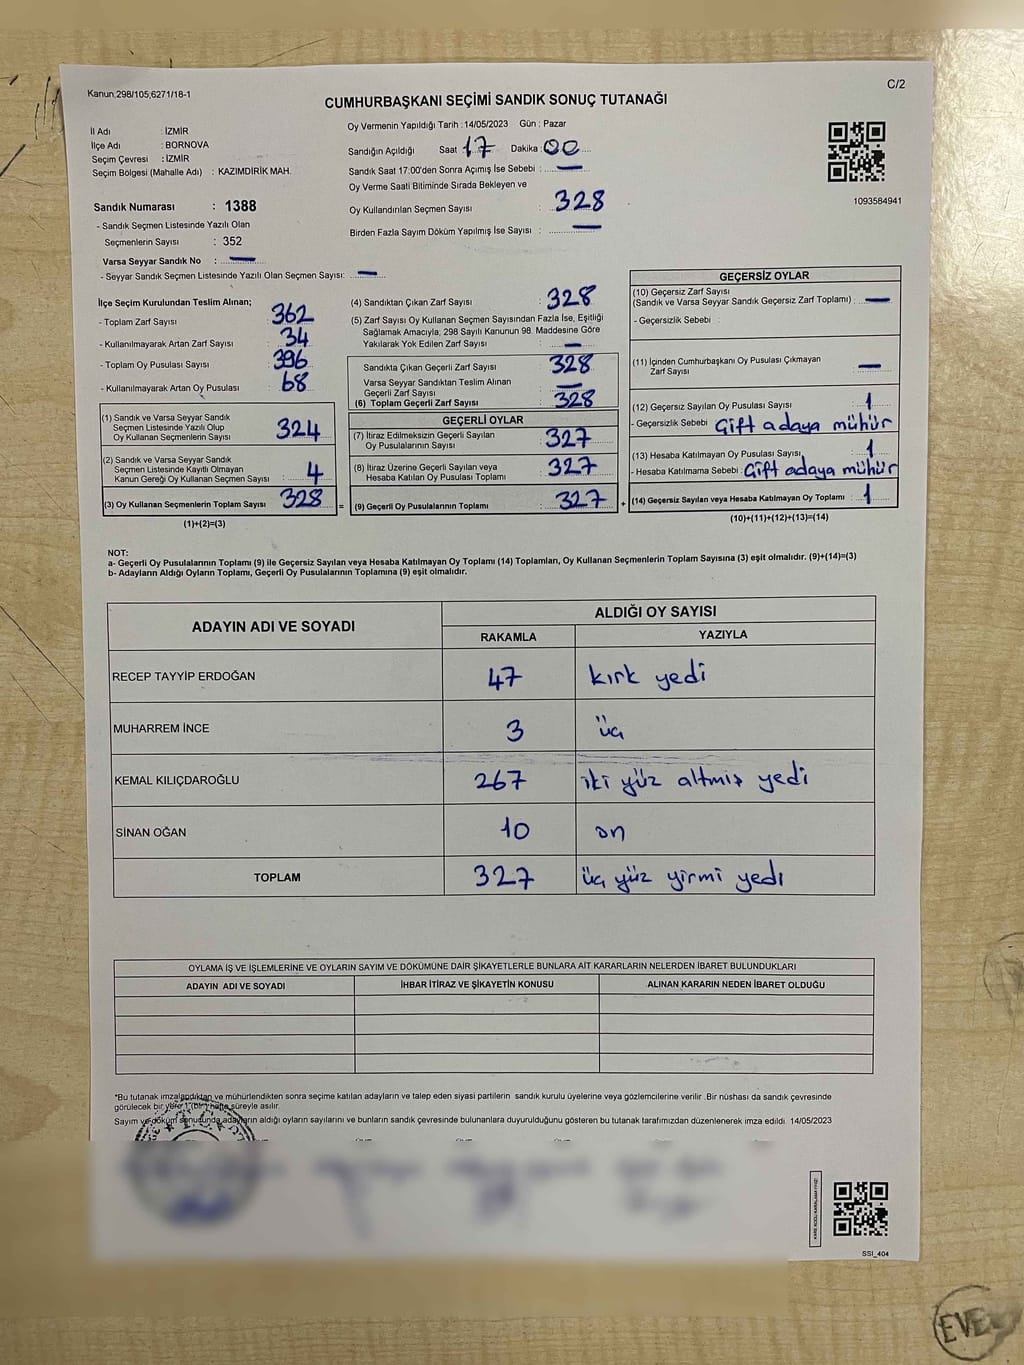 Kanun,298/105,6271/18-1
C/2
CUMHURBAŞKANI SEÇİMİ SANDIK SONUÇ TUTANAĞI
İl Adı : İZMİR
İlçe Adı : BORNOVA
Seçim Çevresi : İZMİR
Seçim Bölgesi (Mahalle Adı) : KAZIMDİRİK MAH.
Sandık Numarası : 1388
- Sandık Seçmen Listesinde Yazılı Olan
Seçmenlerin Sayısı : 352
Varsa Seyyar Sandık No : —
- Seyyar Sandık Seçmen Listesinde Yazılı Olan Seçmen Sayısı: —
Oy Vermenin Yapıldığı Tarih : 14/05/2023 Gün : Pazar
Sandığın Açıldığı Saat : 17 Dakika : 00
Sandık Saat 17:00'den Sonra Açımış İse Sebebi : —
Oy Verme Saati Bitiminde Sırada Bekleyen ve
Oy Kullandırılan Seçmen Sayısı : 328
Birden Fazla Sayım Döküm Yapılmış İse Sayısı : —
1093584941
İlçe Seçim Kurulundan Teslim Alınan;
- Toplam Zarf Sayısı : 362
- Kullanılmayarak Artan Zarf Sayısı : 34
- Toplam Oy Pusulası Sayısı : 396
- Kullanılmayarak Artan Oy Pusulası : 68
(1) Sandık ve Varsa Seyyar Sandık
Seçmen Listesinde Yazılı Olup
Oy Kullanan Seçmenlerin Sayısı : 324
(2) Sandık ve Varsa Seyyar Sandık
Seçmen Listesinde Kayıtlı Olmayan
Kanun Gereği Oy Kullanan Seçmen Sayısı : 4
(3) Oy Kullanan Seçmenlerin Toplam Sayısı : 328
(1)+(2)=(3)
(4) Sandıktan Çıkan Zarf Sayısı : 328
(5) Zarf Sayısı Oy Kullanan Seçmen Sayısından Fazla İse, Eşitliği
Sağlamak Amacıyla, 298 Sayılı Kanunun 98. Maddesine Göre
Yakılarak Yok Edilen Zarf Sayısı : —
Sandıkta Çıkan Geçerli Zarf Sayısı : 328
Varsa Seyyar Sandıktan Teslim Alınan
Geçerli Zarf Sayısı : —
(6) Toplam Geçerli Zarf Sayısı : 328
GEÇERLİ OYLAR
(7) İtiraz Edilmeksizin Geçerli Sayılan
Oy Pusulalarının Sayısı : 327
(8) İtiraz Üzerine Geçerli Sayılan veya
Hesaba Katılan Oy Pusulası Toplamı : 327
= (9) Geçerli Oy Pusulalarının Toplamı : 327 +
GEÇERSİZ OYLAR
(10) Geçersiz Zarf Sayısı
(Sandık ve Varsa Seyyar Sandık Geçersiz Zarf Toplamı) : —
- Geçersizlik Sebebi
(11) İçinden Cumhurbaşkanı Oy Pusulası Çıkmayan
Zarf Sayısı : —
(12) Geçersiz Sayılan Oy Pusulası Sayısı : 1
- Geçersizlik Sebebi : Çift adaya mühür
(13) Hesaba Katılmayan Oy Pusulası Sayısı : 1
- Hesaba Katılmama Sebebi : Çift adaya mühür
(14) Geçersiz Sayılan veya Hesaba Katılmayan Oy Toplamı : 1
(10)+(11)+(12)+(13)=(14)
NOT:
a- Geçerli Oy Pusulalarının Toplamı (9) ile Geçersiz Sayılan veya Hesaba Katılmayan Oy Toplamı (14) Toplamları, Oy Kullanan Seçmenlerin Toplam Sayısına (3) eşit olmalıdır. (9)+(14)=(3)
b- Adayların Aldığı Oyların Toplamı, Geçerli Oy Pusulalarının Toplamına (9) eşit olmalıdır.
ADAYIN ADI VE SOYADI
ALDIĞI OY SAYISI
RAKAMLA YAZIYLA
RECEP TAYYİP ERDOĞAN 47 kırk yedi
MUHARREM İNCE 3 üç
KEMAL KILIÇDAROĞLU 267 iki yüz altmış yedi
SİNAN OĞAN 10 on
TOPLAM 327 üç yüz yirmi yedi
OYLAMA İŞ VE İŞLEMLERİNE VE OYLARIN SAYIM VE DÖKÜMÜNE DAİR ŞİKAYETLERLE BUNLARA AİT KARARLARIN NELERDEN İBARET BULUNDUKLARI
ADAYIN ADI VE SOYADI İHBAR İTİRAZ VE ŞİKAYETİN KONUSU ALINAN KARARIN NEDEN İBARET OLDUĞU
*Bu tutanak imzalandıktan ve mühürlendikten sonra seçime katılan adayların ve talep eden siyasi partilerin sandık kurulu üyelerine veya gözlemcilerine verilir .Bir nüshası da sandık çevresinde
görülecek bir yere 1 (bir) hafta süreyle asılır.
Sayım ve döküm sonusunda adayların aldığı oyların sayılarını ve bunların sandık çevresinde bulunanlara duyurulduğunu gösteren bu tutanak tarafımızdan düzenlenerek imza edildi. 14/05/2023
SSI_404
EVE